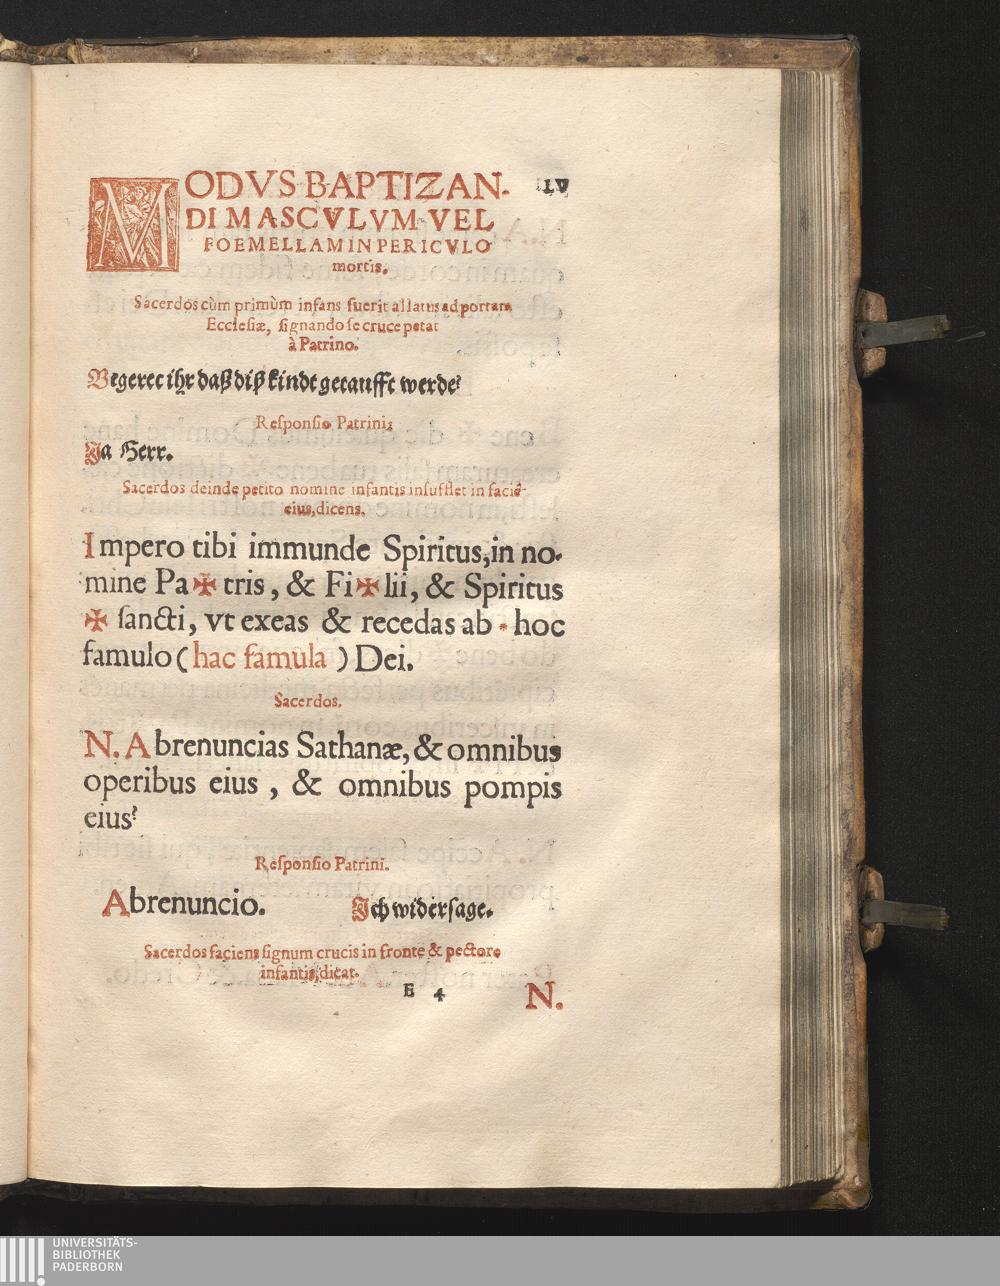 MODVS BAPTIZAN-
DI MASCVLVM VEL
FOEMELLAM IN PERICVLO
mortis.
LV
Sacerdos cùm primùm infans fuerit allatus ad portam
Ecclesiæ, signando se cruce petat
à Patrino.
Begeret ihr daß diß kindt getaufft werde?
Responsio Patrini;
Ja Herr.
Sacerdos deinde petito nomine infantis insufflet in faciē
eius, dicens.
Impero tibi immunde Spiritus, in no-
mine Pa✠tris, & Fi✠lii, & Spiritus
✠ sancti, vt exeas & recedas ab * hoc
famulo (hac famula) Dei.
Sacerdos.
N. Abrenuncias Sathanæ, & omnibus
operibus eius, & omnibus pompis
eius?
Responsio Patrini.
Abrenuncio. Ich widersage.
Sacerdos faciens signum crucis in fronte & pectore
infantis, dicat.
E 4 N.
UNIVERSITÄTS-
BIBLIOTHEK
PADERBORN